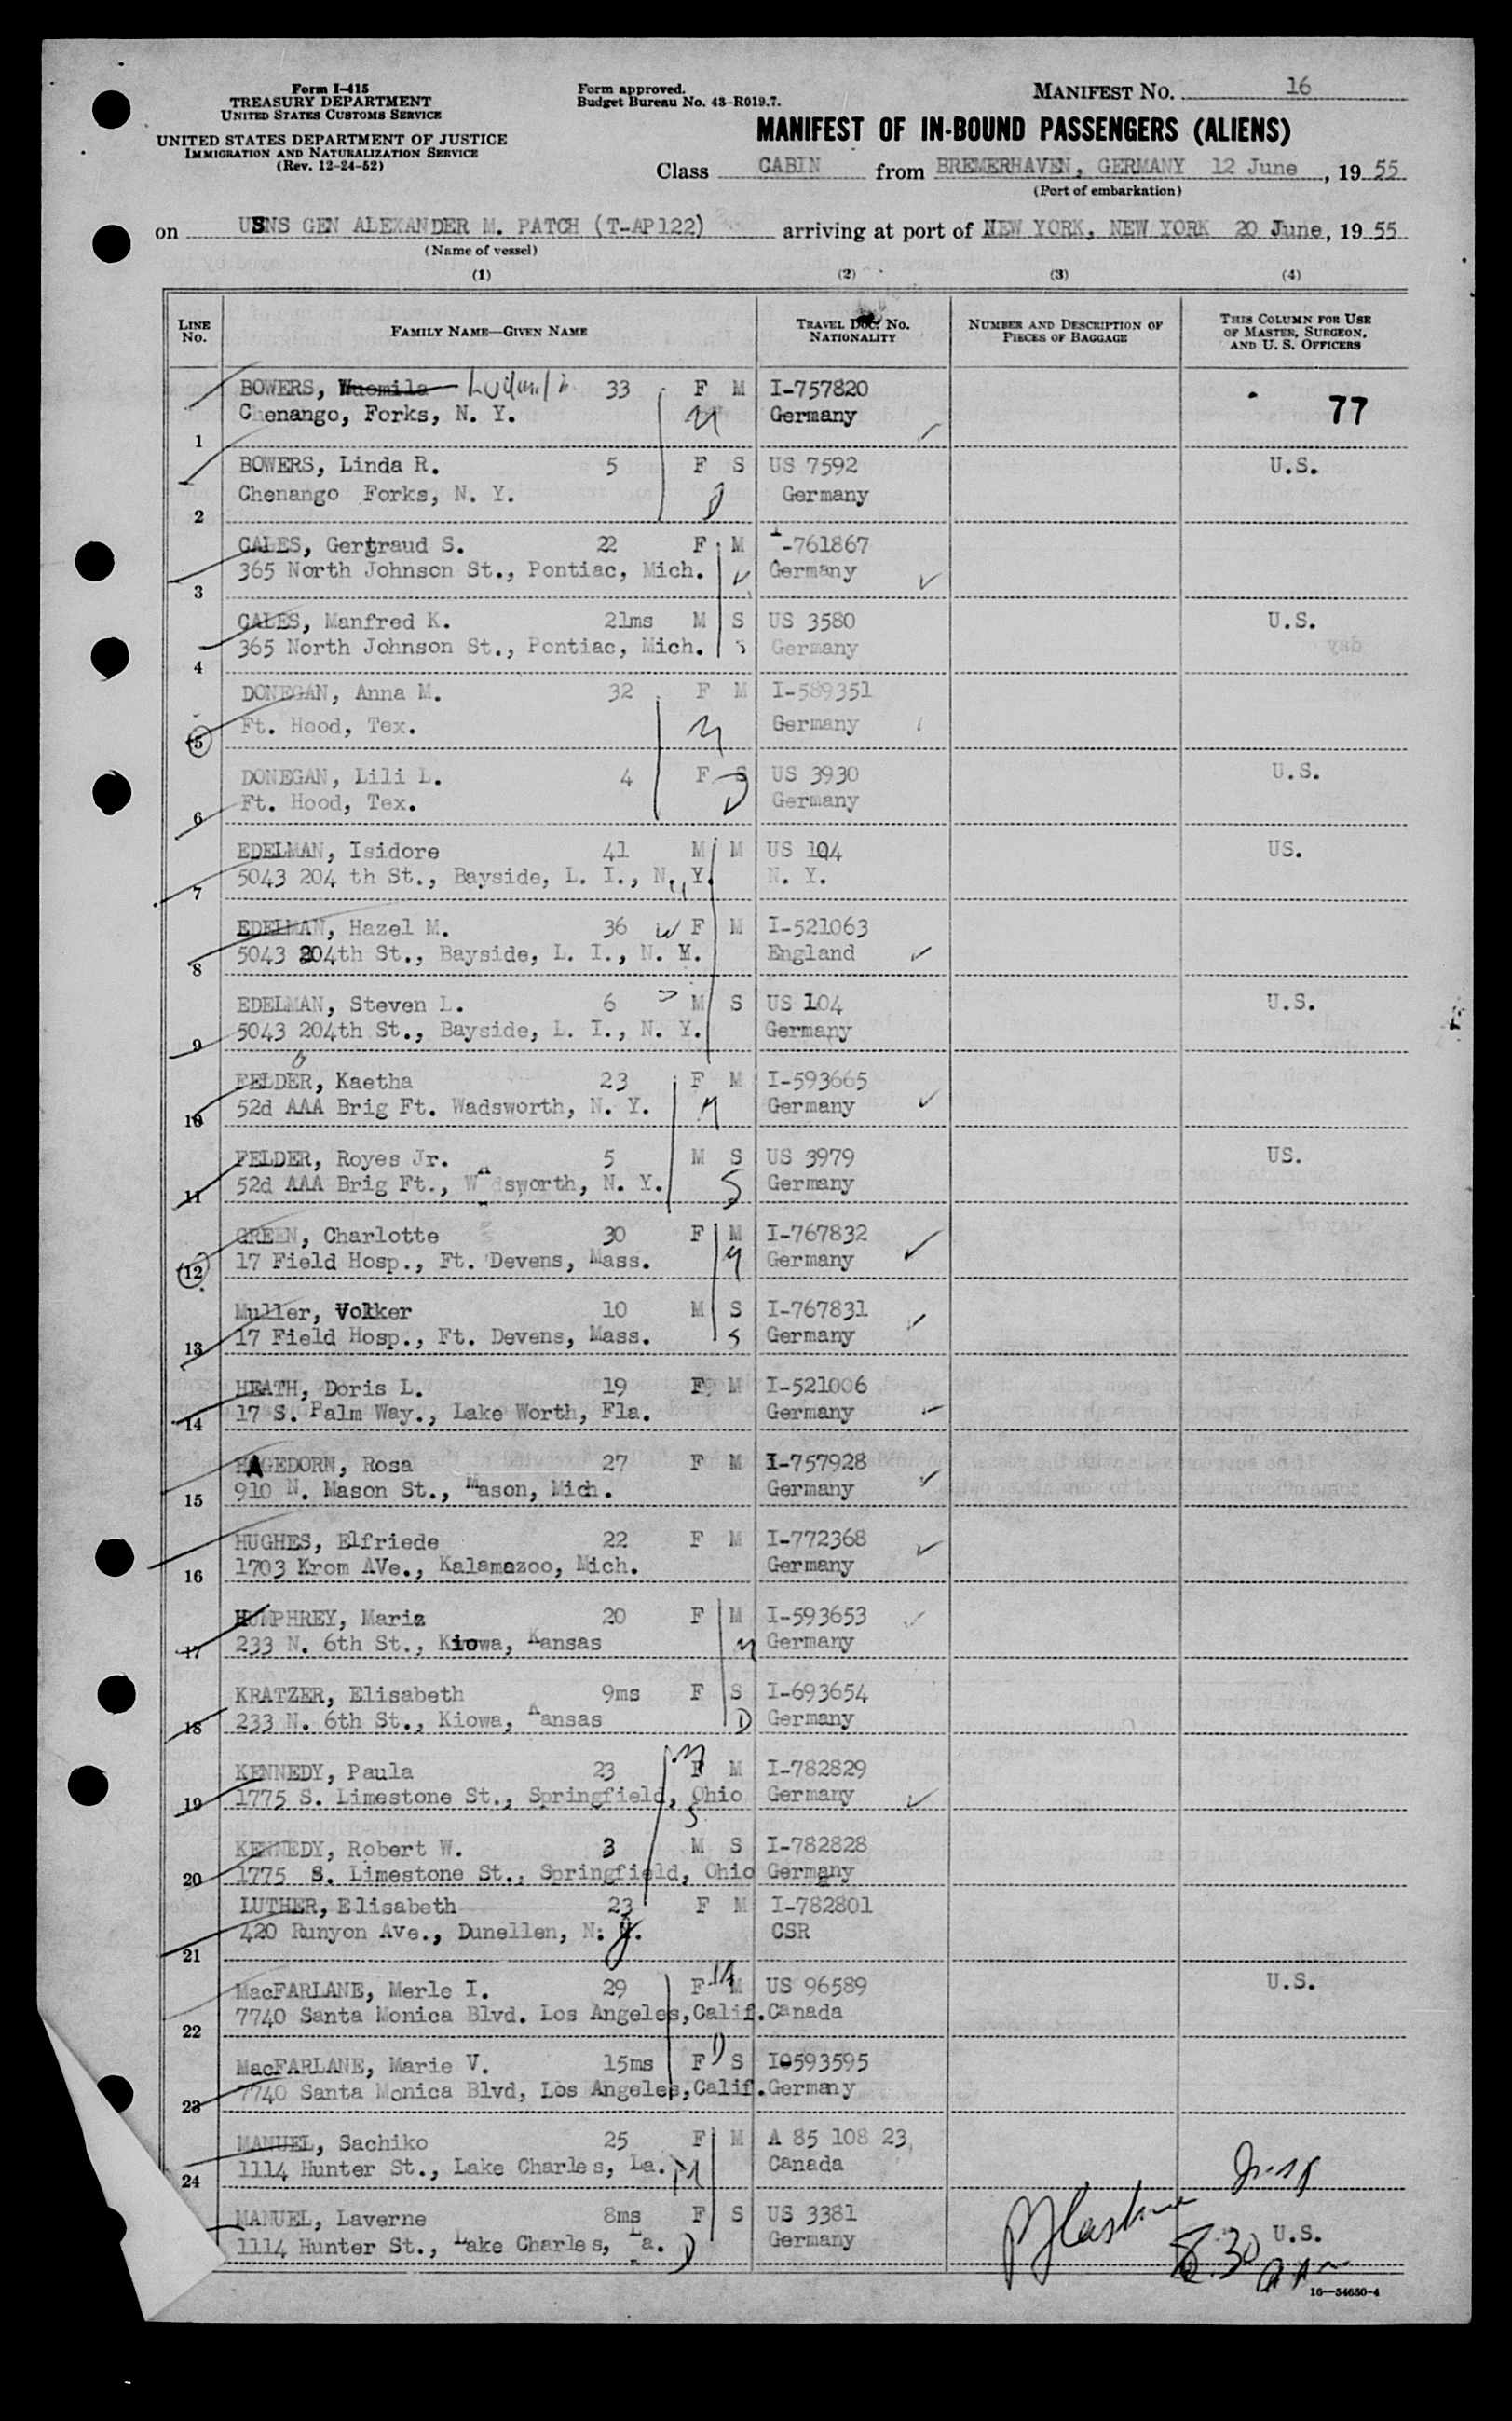 Form I-415
TREASURY DEPARTMENT
UNITED STATES CUSTOMS SERVICE
UNITED STATES DEPARTMENT OF JUSTICE
IMMIGRATION AND NATURALIZATION SERVICE
(Rev. 12-24-52)
Form approved.
Budget Bureau No. 43-R019.7.
MANIFEST NO. 16
MANIFEST OF IN-BOUND PASSENGERS (ALIENS)
Class CABIN from BREMERHAVEN, GERMANY 12 June, 1955
(Port of embarkation)
on USNS GEN ALEXANDER M. PATCH (T-AP122) arriving at port of NEW YORK, NEW YORK 20 June, 1955
(Name of vessel)
(1) (2) (3) (4)
LINE NO. FAMILY NAME—GIVEN NAME TRAVEL DOC. NO. NATIONALITY NUMBER AND DESCRIPTION OF PIECES OF BAGGAGE THIS COLUMN FOR USE OF MASTER, SURGEON, AND U. S. OFFICERS
BOWERS, 33 F M I-757820
Chenango, Forks, N. Y. M Germany 77
1
BOWERS, Linda R. 5 F S US 7592 U.S.
Chenango Forks, N. Y. D Germany
2
CALES, Gertraud S. 22 F M I-761867
365 North Johnson St., Pontiac, Mich. Germany
3
CALES, Manfred K. 21ms M S US 3580 U.S.
365 North Johnson St., Pontiac, Mich. S Germany
4
DONEGAN, Anna M. 32 F M I-589351
Ft. Hood, Tex. M Germany
5
DONEGAN, Lili L. 4 F S US 3930 U.S.
Ft. Hood, Tex. D Germany
6
EDELMAN, Isidore 41 M M US 104 US.
5043 204 th St., Bayside, L. I., N. Y. N. Y.
7
EDELMAN, Hazel M. 36 W F M I-521063
5043 204th St., Bayside, L. I., N. Y. England
8
EDELMAN, Steven L. 6 S M S US 104 U.S.
5043 204th St., Bayside, L. I., N. Y. Germany
9
FELDER, Kaetha 23 F M I-593665
52d AAA Brig Ft. Wadsworth, N. Y. M Germany
10
FELDER, Royes Jr. 5 M S US 3979 US.
52d AAA Brig Ft., Wadsworth, N. Y. S Germany
11
GREEN, Charlotte 30 F M I-767832
17 Field Hosp., Ft. Devens, Mass. M Germany
12
Muller, Volker 10 M S I-767831
17 Field Hosp., Ft. Devens, Mass. S Germany
13
HEATH, Doris L. 19 F M I-521006
17 S. Palm Way., Lake Worth, Fla. Germany
14
HAGEDORN, Rosa 27 F M I-757928
910 N. Mason St., Mason, Mich. Germany
15
HUGHES, Elfriede 22 F M I-772368
1703 Krom AVe., Kalamazoo, Mich. Germany
16
HUMPHREY, Maria 20 F M I-593653
233 N. 6th St., Kiowa, Kansas M Germany
17
KRATZER, Elisabeth 9ms F S I-693654
233 N. 6th St., Kiowa, Kansas D Germany
18
KENNEDY, Paula 23 M F M I-782829
1775 S. Limestone St., Springfield, Ohio Germany
19
S
KENNEDY, Robert W. 3 M S I-782828
1775 S. Limestone St., Springfield, Ohio Germany
20
LUTHER, Elisabeth 23 F M I-782801
420 Runyon Ave., Dunellen, N. J. CSR
21
MacFARLANE, Merle I. 29 F M M US 96589 U.S.
7740 Santa Monica Blvd. Los Angeles, Calif. Canada
22
MacFARLANE, Marie V. 15ms F D S I0593595
7740 Santa Monica Blvd, Los Angeles, Calif. Germany
23
MANUEL, Sachiko 25 F M A 85 108 23
1114 Hunter St., Lake Charles, La. M Canada
24
MANUEL, Laverne 8ms F S US 3381 U.S.
1114 Hunter St., Lake Charles, La. D Germany
8:30
16—54650-4